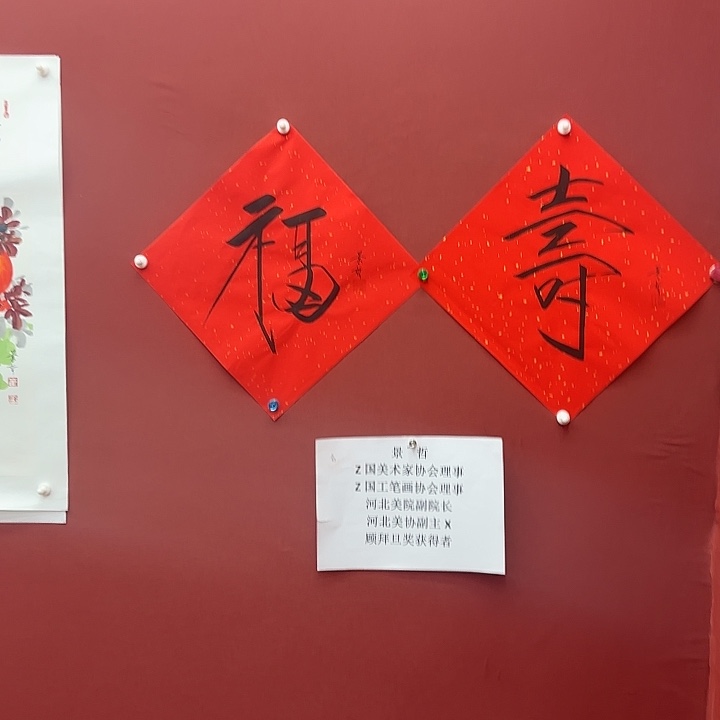 福
壽
景 哲
Z国美术家协会理事
Z国工笔画协会理事
河北美院副院长
河北美协副主X
顾拜旦奖获得者